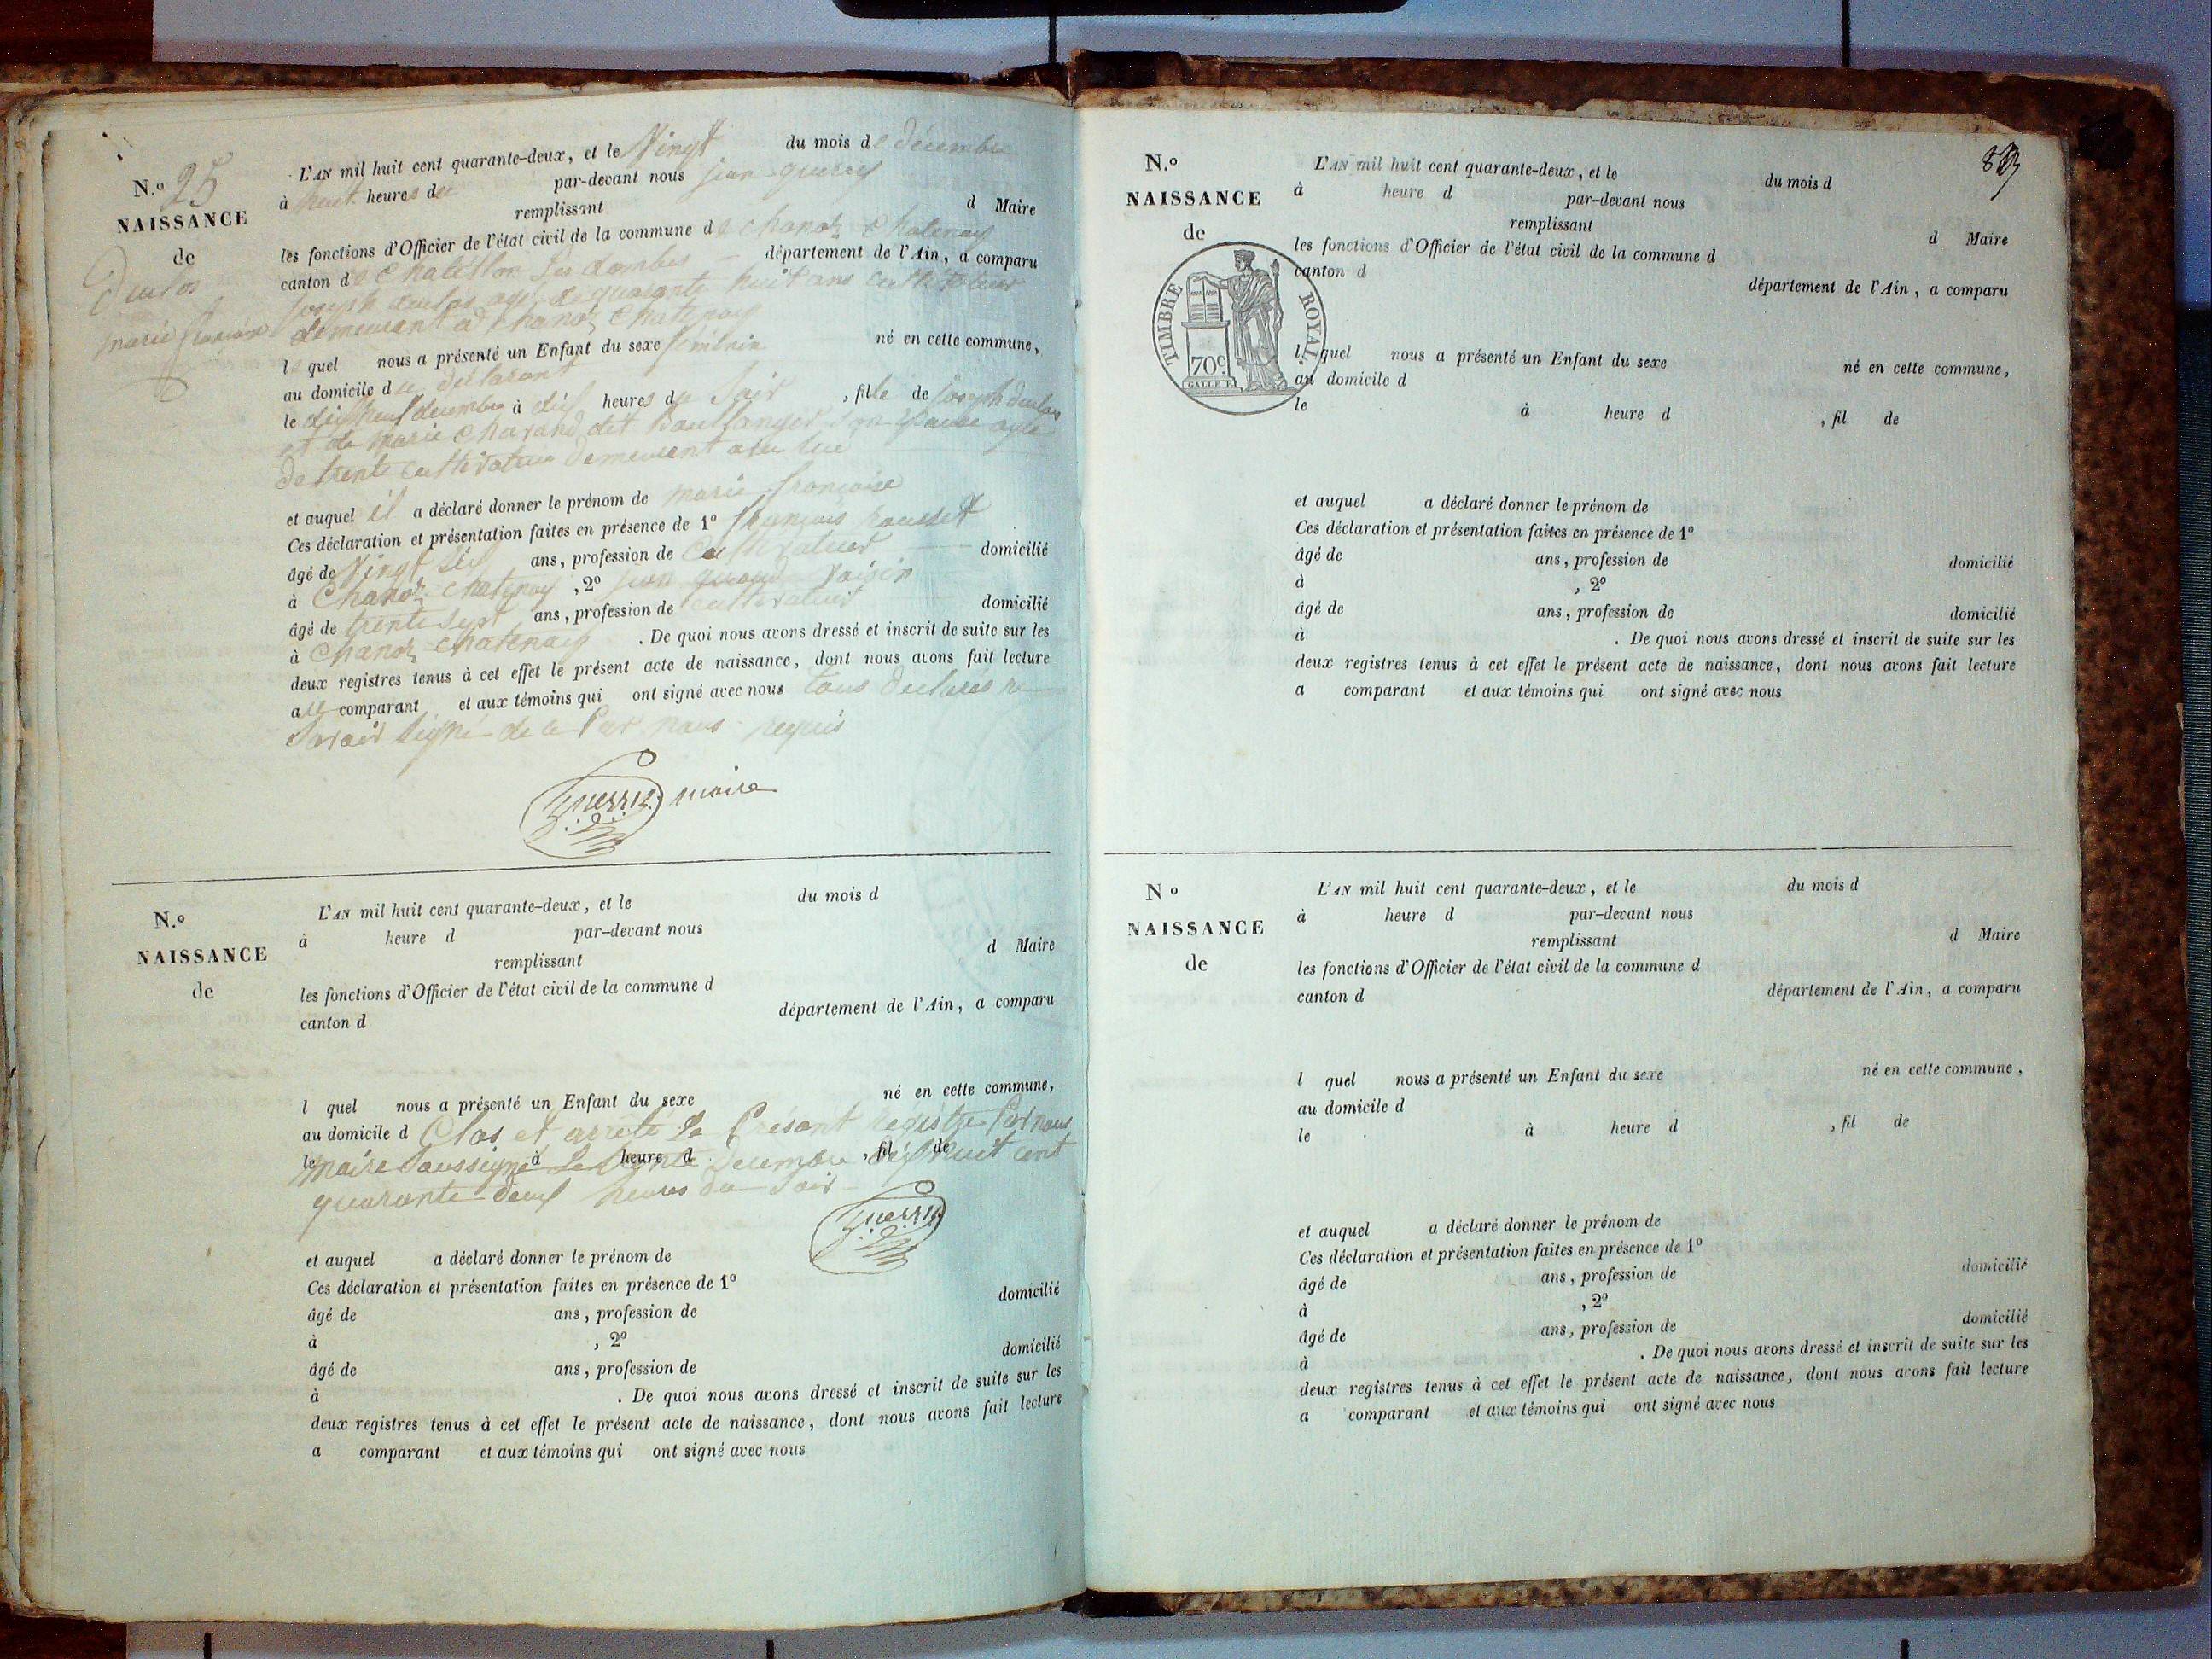 N.º 25
NAISSANCE
de
Duclos
marie françoise
L'AN mil huit cent quarante-deux, et le Vingt du mois de décembre
à huit heures du par-devant nous jean guerry
remplissant d Maire
les fonctions d'Officier de l'état civil de la commune de chanoz chatenay
canton de chatillon les dombes département de l'Ain, a comparu
joseph duclos age de quarante huit ans cultivateur
demeurant a chanoz chatenay
lequel nous a présenté un Enfant du sexe féminin né en cette commune,
au domicile du déclarant
le dix neuf decembre à dix heures du soir, fille de joseph duclos
et de marie charand dit Boullanger son epouse agée
de trente cultivateur demeurant a su lieu
et auquel il a déclaré donner le prénom de marie françoise
Ces déclaration et présentation faites en présence de 1º françois rousset
âgé de Vingt six ans, profession de cultivateur domicilié
à Chanoz chatenay, 2º jean voisin
âgé de trente sept ans, profession de cultivateur domicilié
à Chanoz chatenay. De quoi nous avons dressé et inscrit de suite sur les
deux registres tenus à cet effet le présent acte de naissance, dont nous avons fait lecture
au comparant et aux témoins qui ont signé avec nous tous déclarés ne
savoir signé de ce par nous requis
guerry maire
N.º
NAISSANCE
de
L'AN mil huit cent quarante-deux, et le du mois d
à heure d par-devant nous
remplissant d Maire
les fonctions d'Officier de l'état civil de la commune d
canton d département de l'Ain, a comparu
l quel nous a présenté un Enfant du sexe né en cette commune,
au domicile d Clos et arrete le Présant registre Par nous
le à heure d , fil de
maire soussigné le trente decembre dix huit cent
quarante deux heures du soir
guerry
et auquel a déclaré donner le prénom de
Ces déclaration et présentation faites en présence de 1º
âgé de ans, profession de domicilié
à , 2º
âgé de ans, profession de domicilié
à . De quoi nous avons dressé et inscrit de suite sur les
deux registres tenus à cet effet le présent acte de naissance, dont nous avons fait lecture
a comparant et aux témoins qui ont signé avec nous
N.º
NAISSANCE
de
TIMBRE ROYAL
70c
L'AN mil huit cent quarante-deux, et le du mois d
à heure d par-devant nous
remplissant d Maire
les fonctions d'Officier de l'état civil de la commune d
canton d département de l'Ain, a comparu
l quel nous a présenté un Enfant du sexe né en cette commune,
au domicile d
le à heure d , fil de
et auquel a déclaré donner le prénom de
Ces déclaration et présentation faites en présence de 1º
âgé de ans, profession de domicilié
à , 2º
âgé de ans, profession de domicilié
à . De quoi nous avons dressé et inscrit de suite sur les
deux registres tenus à cet effet le présent acte de naissance, dont nous avons fait lecture
a comparant et aux témoins qui ont signé avec nous
Nº
NAISSANCE
de
L'AN mil huit cent quarante-deux, et le du mois d
à heure d par-devant nous
remplissant d Maire
les fonctions d'Officier de l'état civil de la commune d
canton d département de l'Ain, a comparu
l quel nous a présenté un Enfant du sexe né en cette commune,
au domicile d
le à heure d , fil de
et auquel a déclaré donner le prénom de
Ces déclaration et présentation faites en présence de 1º
âgé de ans, profession de domicilié
à , 2º
âgé de ans, profession de domicilié
à . De quoi nous avons dressé et inscrit de suite sur les
deux registres tenus à cet effet le présent acte de naissance, dont nous avons fait lecture
a comparant et aux témoins qui ont signé avec nous